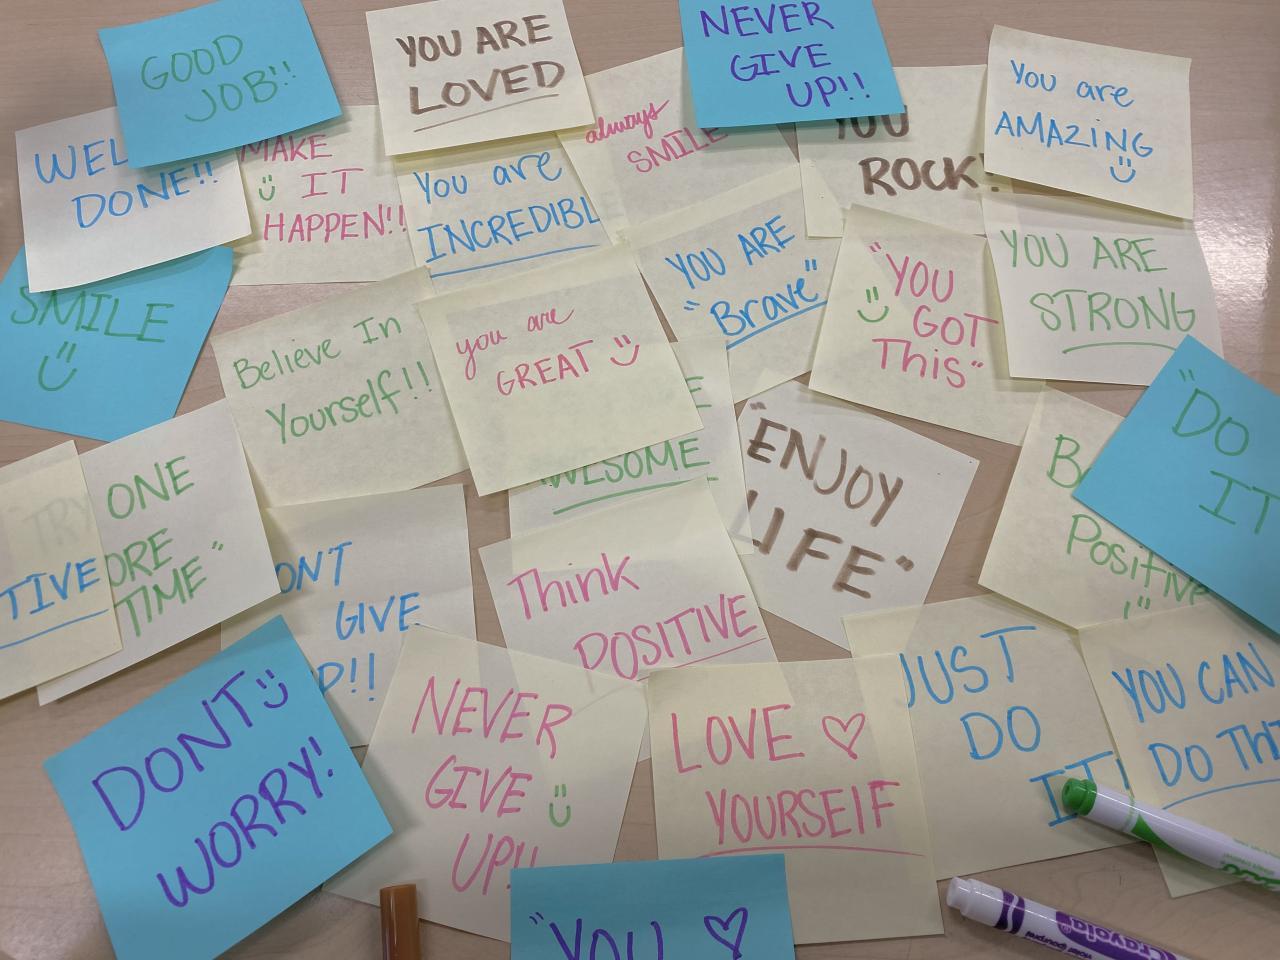 GOOD
JOB!!
YOU ARE
LOVED
NEVER
GIVE
UP!!
You are
AMAZING
WEL
DONE!!
MAKE
IT
HAPPEN!!
You are
INCREDIBL
always
SMILE
YOU
ROCK!
SMILE
Believe In
Yourself!!
you are
GREAT
YOU ARE
"Brave"
"YOU
GOT
This"
YOU ARE
STRONG
"DO
IT
TRY ONE
ORE
TIME"
TIVE
WESOME
"ENJOY
LIFE"
Be
Positive
!"
ONT
GIVE
P!!
Think
POSITIVE
DONT
WORRY!
NEVER
GIVE
UP!!
LOVE
YOURSELF
JUST
DO
IT!
YOU CAN
DO THI
"YOU
Crayola